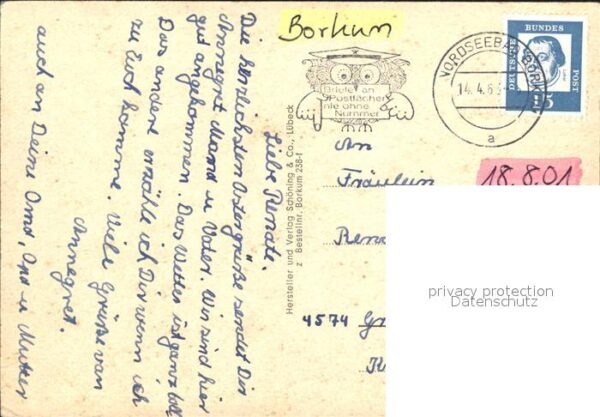 Borkum
Liebe Renate.
Die herzlichsten Ostergrüße sendet Dir
Annegret Mama u Vater. Wir sind hier
gut angekommen. Das Wetter ist ganz toll
Das andere erzähle ich Dir wenn ich
zu Euch komme. Viele Grüße von
Annegret.
auch an Deine Oma, Opa u Mutter
Hersteller und Verlag Schöning & Co., Lübeck
z Bestellnr. Borkum 238-t
Briefe an
Postfächer
nie ohne
Nummer
NORDSEEBAD BORKUM
14.4.6
a
DEUTSCHE BUNDES POST
15
18.8.01
An
Fräulein
Rena
4574 Gr
K
privacy protection
Datenschutz